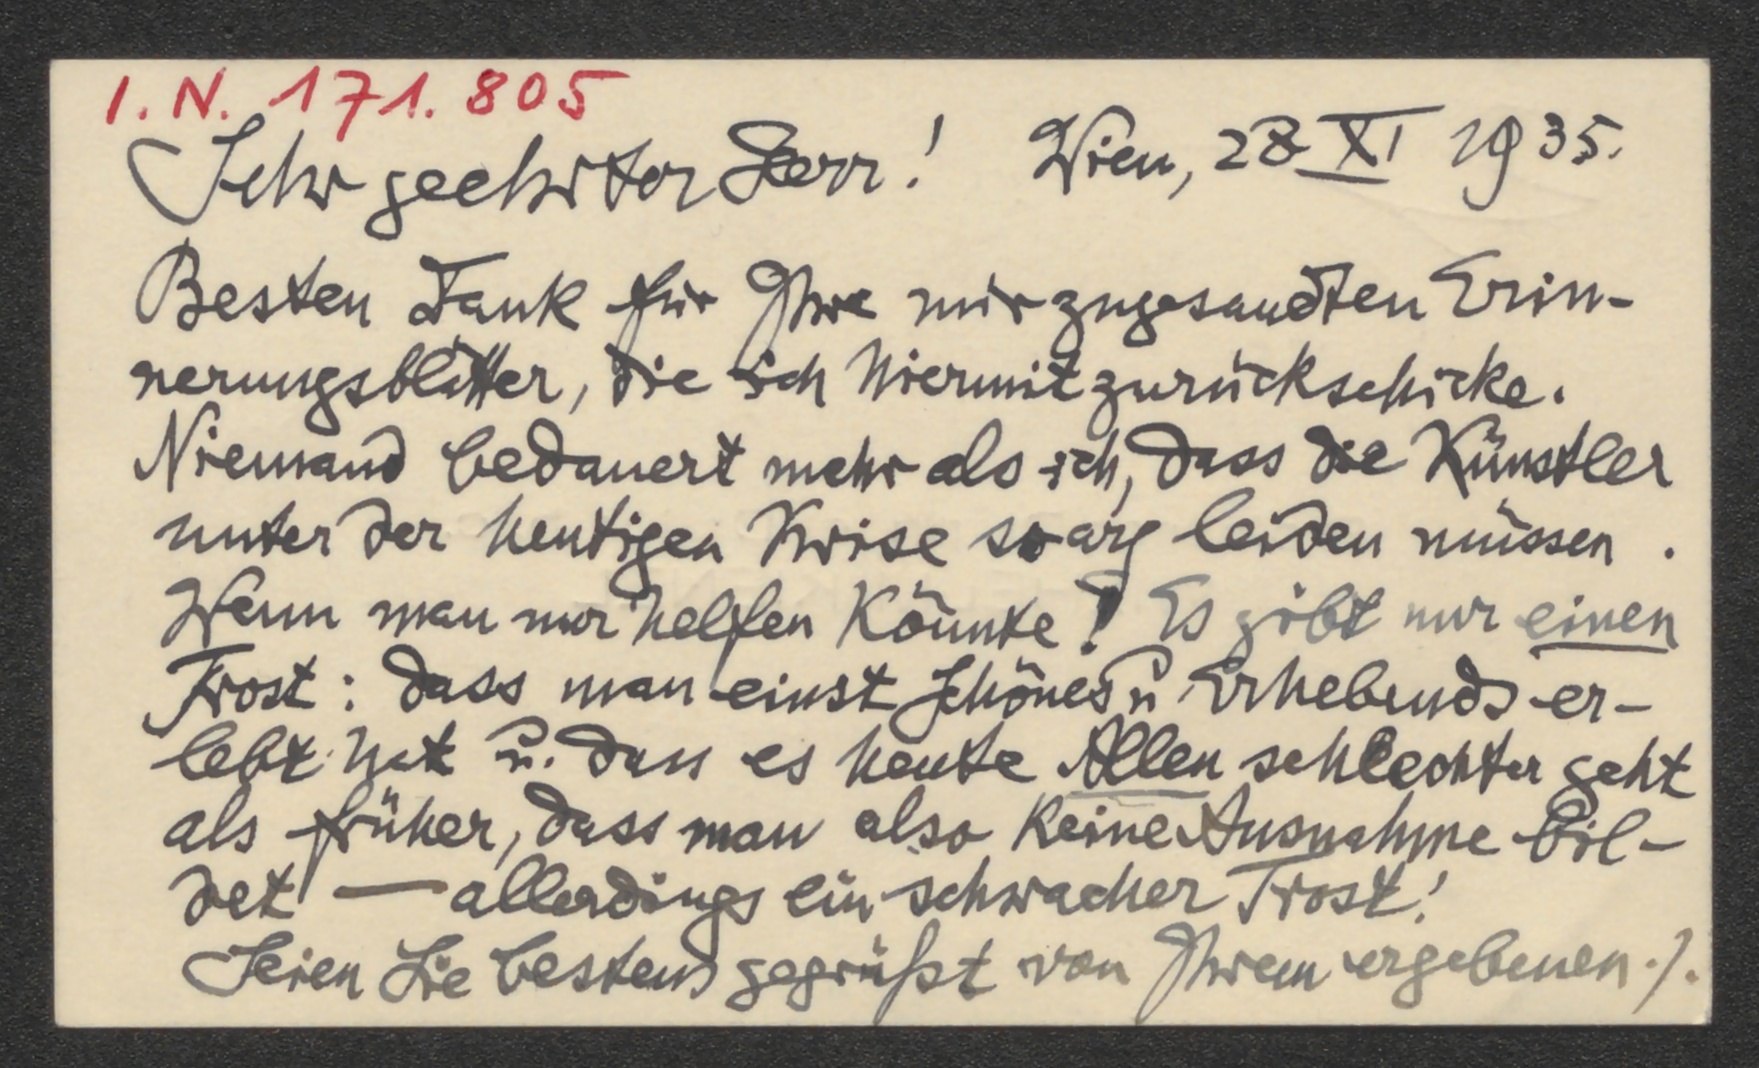 I.N. 171.805
Sehr geehrter Herr! Wien, 28 XI 1935.
Besten Dank für Ihre mir zugesandten Erin-
nerungsblätter, die ich hiermit zurückschicke.
Niemand bedauert mehr als ich, dass die Künstler
unter der heutigen Krise so arg leiden müssen.
Wenn man nur helfen könnte! Es gibt nur einen
Trost: dass man einst Schönes u Erhebends er-
lebt hat u. dass es heute Allen schlechter geht
als früher, dass man also keine Ausnahme bil-
det — allerdings ein schwacher Trost!
Seien Sie bestens gegrüßt von Ihrem ergebenen ./.